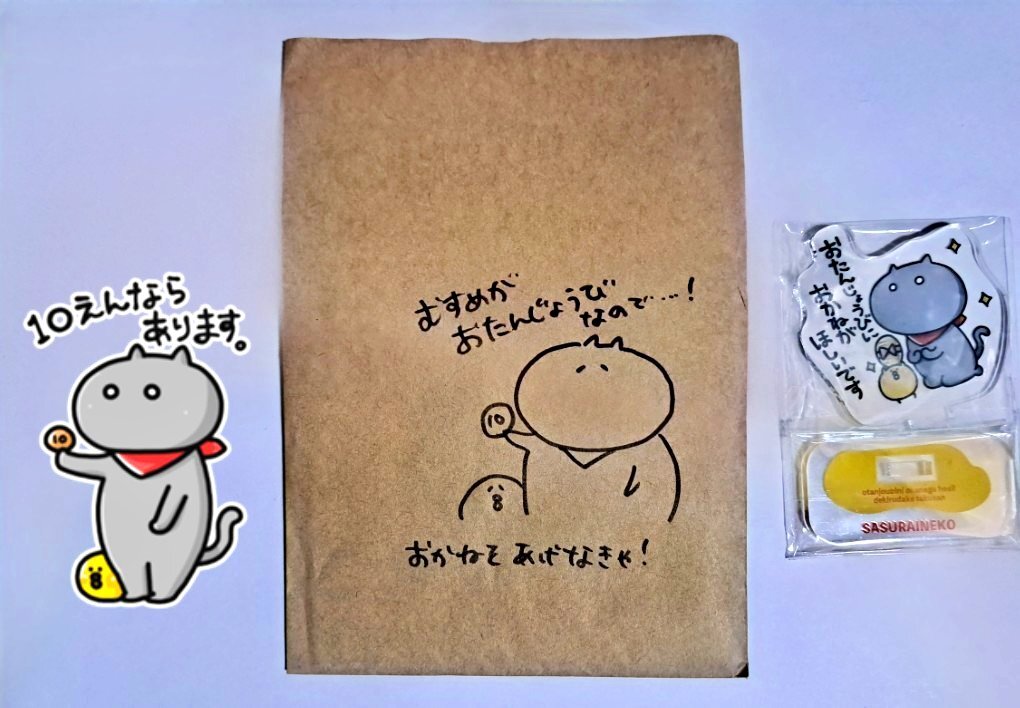 10えんなら
あります。
10
むすめが
おたんじょうび
なので……!
10
おかねを あげなきゃ!
おたんじょうびに
おかねが
ほしいです
otanjoubini okanega hosii
dekirudake takusan
SASURAINEKO